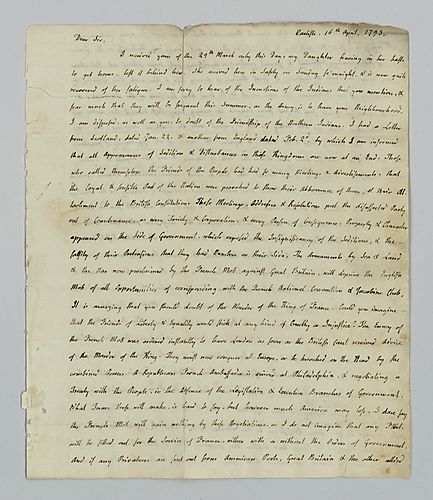 Carlisle. 16th April, 1793.
Dear Sir,
I received yours of the 29th March only this Day, my Daughter having in her haste
to get home, left it behind her. She arrived here in Safety on Sunday se'ennight, & is now quite
recovered of her fatigue. I am sorry to hear of the Intentions of the Indians that you mention, &
fear much that they will be frequent this Summer, as the Army is to leave your Neighbourhood.
I am disposed, as well as you, to doubt of the Friendship of the Northern Indians. I had a Letter
from Scotland, dated Jan. 22. & another from England dated Feb. 2d, by which I am informed
that all Appearances of Sedition & Disturbances in those Kingdoms are now at an End. Those
who called themselves the Friends of the People had held so many Meetings & Advertisements, that
the Loyal & sensible Part of the Nation were provoked to shew their Abhorrence of them, & their At-
tachment to the British Constitution. These Meetings, Addresses & Resolutions put the disaffected Party
out of Countenance, as every Society, & Corporation, & every Person of Consequence, Property & Character
appeared on the Side of Government, which exposed the Insignificancy of the Seditious, & the
falsity of their Pretensions that they had Numbers on their Side. The Armaments by Sea & Land
& the War now proclaimed by the French Mob against Great Britain, will deprive the English
Mob of all Opportunities of corresponding with the French National Convention & Jacobine Club.
It is amazing that you should doubt of the Murder of the King of France. Could you imagine
that the Friends of Liberty & Equality would stick at any kind of Cruelty or Injustice? The Envoy of
the French Mob was ordered instantly to leave London as soon as the British Court received Advice
of the Murder of the King. They must now conquer all Europe, or be knocked on the Head by the
combined Powers. A Republican French Ambassador is arrived at Philadelphia, & negotiating a
Treaty with the People, in the Absence of the Legislative & Executive Branches of Government.
What Terms these will make, is hard to say, but however much America may lose, I dare say
the French Mob will gain nothing by these Negotiations, as I do not imagine that any Fleet
will be fitted out for the Service of France either with or without the Orders of Government.
And if any Privateers are sent out from American Ports, Great Britain & the other allied